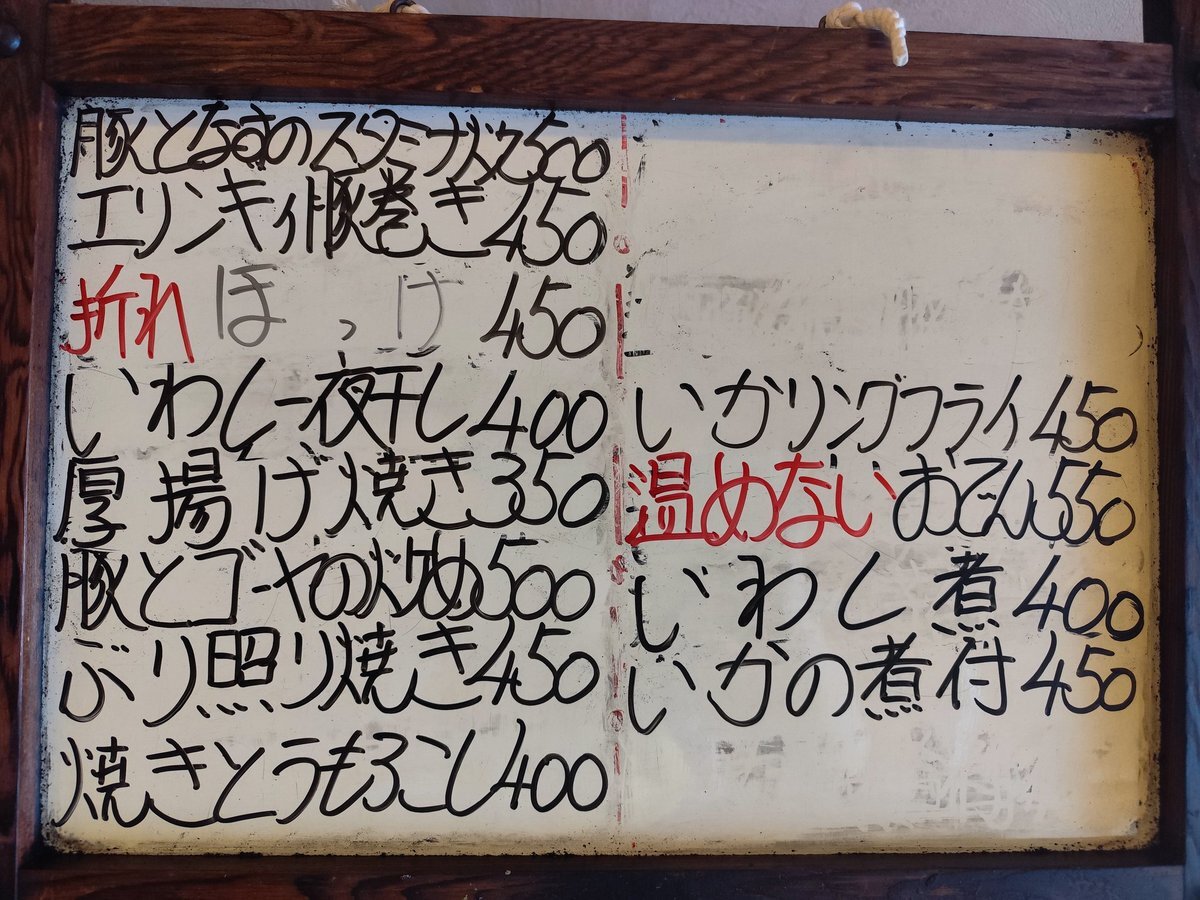 豚となすのスタミナ炒500
エリンギィ豚巻き450
折れほっけ 450
いわし一夜干し400
厚揚げ焼き350
豚とゴーヤの炒め500
ぶり照り焼き450
焼きとうもろこし400
いかリングフライ450
温めないおでん550
いわし煮400
いかの煮付450